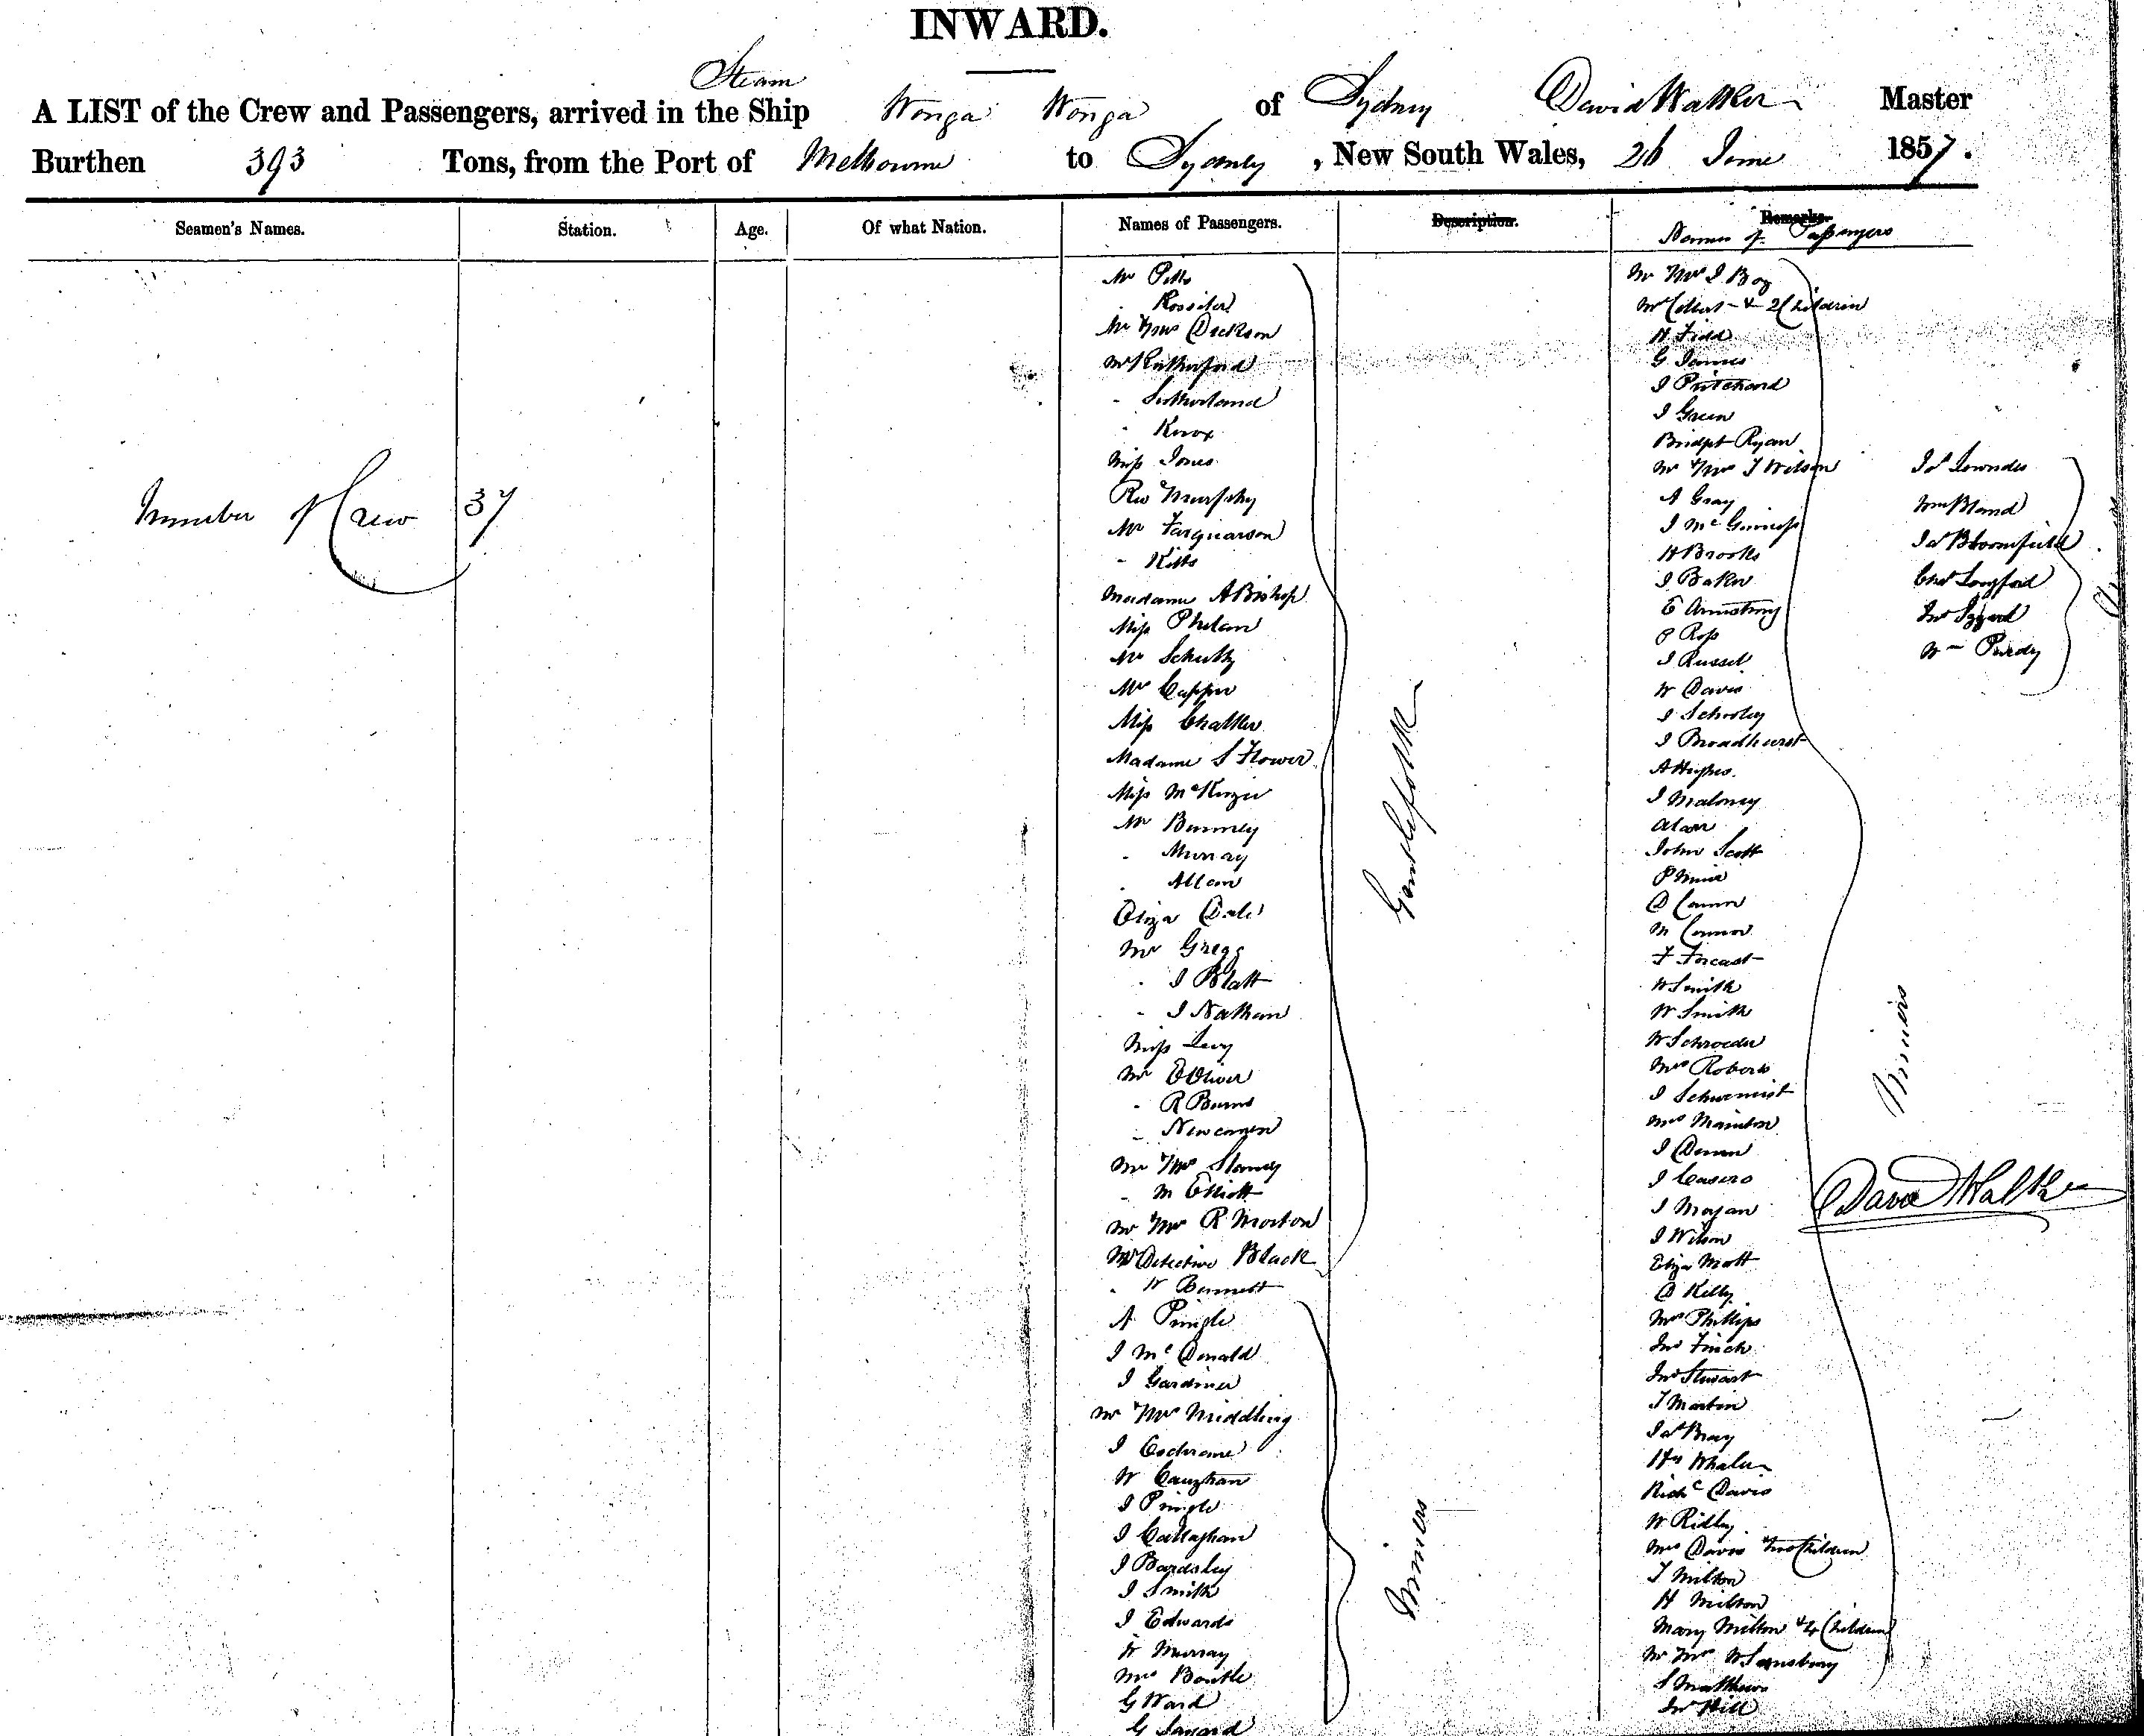 INWARD.
Steam
A LIST of the Crew and Passengers, arrived in the Ship Wonga Wonga of Sydney David Walker Master
Burthen 393 Tons, from the Port of Melbourne to Sydney, New South Wales, 26 June 1857.
Seamen's Names. Station. Age. Of what Nation. Names of Passengers. Description. Remarks.
Names of Passengers
Number of Crew 37
Mr Pitts
" Rossiter
Mr & Mrs Dickson
Mr Rutherford
" Sutherland
" Knox
Miss Jones
Rev Murphy
Mr Farquarson
" Kitts
Madame A Bishop
Miss Phelan
Mr Schultz
Mr Capper
Miss Chalker
Madame S Flower
Miss McKinzie
Mr Bunney
" Murray
" Allan
Eliza Dale
Mr Gregg
" J Blatt
" J Nathan
Miss Levy
Mr E Oliver
" R Burns
" Newcomen
Mr & Mrs
" M Elliott
Mr & Mrs R Morton
Mr Detective Black
" W Bennett
Gentlefolk
A Pringle
J McDonald
J Gardiner
Mr & Mrs Middling
J Cochrane
W Caughan
J Pringle
J Callaghan
J Bardsley
J Smith
J Edwards
W Murray
Mrs
G Ward
G
Miners
Mr Mrs J Boy
Mrs & 2 Children
H
G James
J Pritchard
J Green
Bridget Ryan
Mr & Mrs J Wilson
A Gray
J McGuiness
H Brooks
J Baker
E Armstrong
P Ross
J Russel
W Davis
J Schooley
J Broadhurst
A Hughes
J Maloney
Alan
John Scott
P
D
M Connor
F
W Smith
W Smith
W Schroeder
Mrs Roberts
J
Mrs
J
J
J
J Wilson
Eliza Mott
D Kelly
Mrs Phillips
Jno Finch
Jno Stewart
J Martin
Jas Bray
Hy Whalen
Richd Davis
W Ridley
Mrs Davis & two Children
J Milton
H Milton
Mary Milton & 4 Children
Mr Mrs W Sainsbury
S Matthews
Jno Hill
Miners
Js Lowndes
Wm Bland
Js Bloomfield
Chas Longford
Jno Izzard
Wm Purdy
David Walker